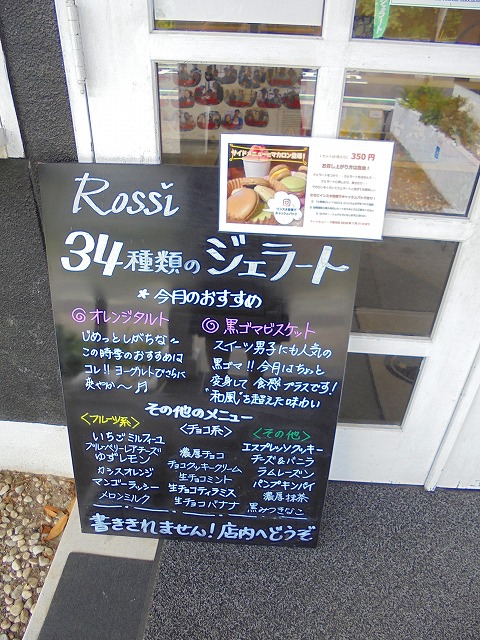 サイドメニューにマカロン登場!
350円
Rossi
34種類のジェラート
★今月のおすすめ
オレンジタルト
じめっとしがちな〜
この時季のおすすめは
コレ!!ヨーグルトでさらに
爽やか〜♬
黒ゴマビスケット
スイーツ男子にも人気の
黒ゴマ!!今月はちょっと
変身して食感プラスです!
"和風"を超えた味わい
その他のメニュー
<フルーツ系>
いちごミルフィーユ
ブルーベリーレアチーズ
ゆずレモン
カシスオレンジ
マンゴーラッシー
メロンミルク
<チョコ系>
濃厚チョコ
チョコクッキークリーム
生チョコミント
生チョコティラミス
生チョコバナナ
<その他>
エスプレッソクッキー
チーズ&バニラ
ラムレーズン
パンプキンパイ
濃厚抹茶
黒みつきなこ
書ききれません!店内へどうぞ